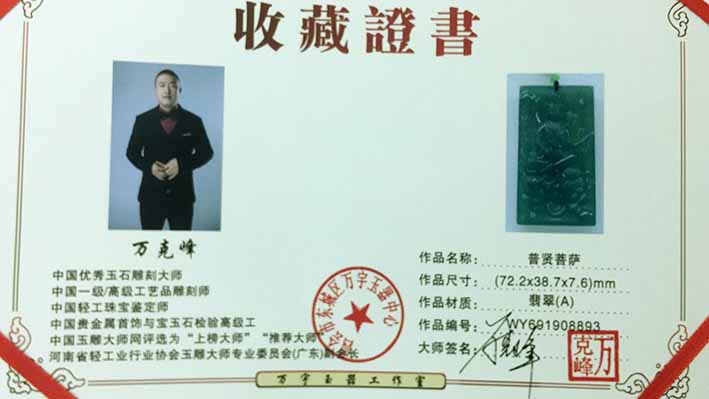 收藏證書
万克峰
中国优秀玉石雕刻大师
中国一级/高级工艺品雕刻师
中国轻工珠宝鉴定师
中国贵金属首饰与宝玉石检验高级工
中国玉雕大师网评选为“上榜大师”“推荐大师”。
河南省轻工业行业协会玉雕大师专业委员会(广东)副会长
作品名称: 普贤菩萨
作品尺寸: (72.2x38.7x7.6)mm
作品材质: 翡翠(A)
作品编号: WY691908893
大师签名: 万克峰
万克峰
市东城区万宇玉器中心
万宇玉器工作室